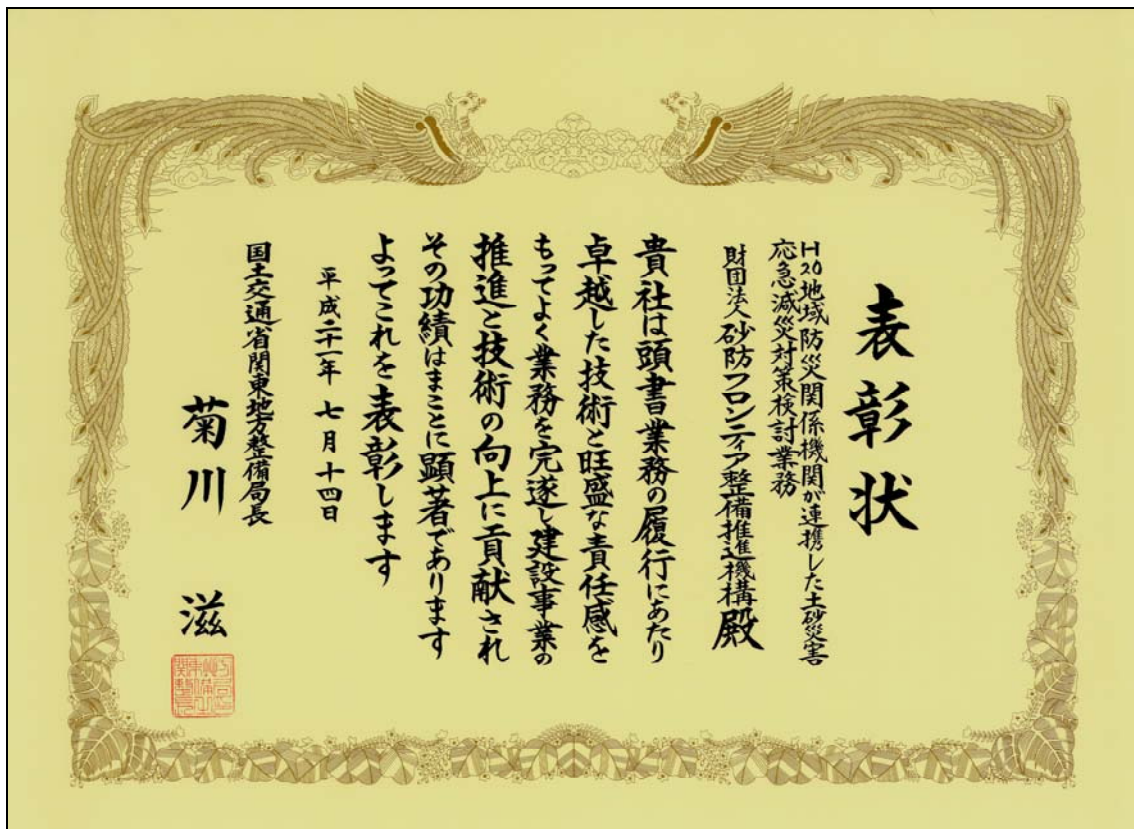 表彰状
H20地域防災関係機関が連携した土砂災害
応急減災対策検討業務
財団法人 砂防フロンティア整備推進機構 殿
貴社は頭書業務の履行にあたり
卓越した技術と旺盛な責任感を
もってよく業務を完遂し建設事業の
推進と技術の向上に貢献され
その功績はまことに顕著であります
よってこれを表彰します
平成二十一年 七月十四日
国土交通省関東地方整備局長
菊川 滋